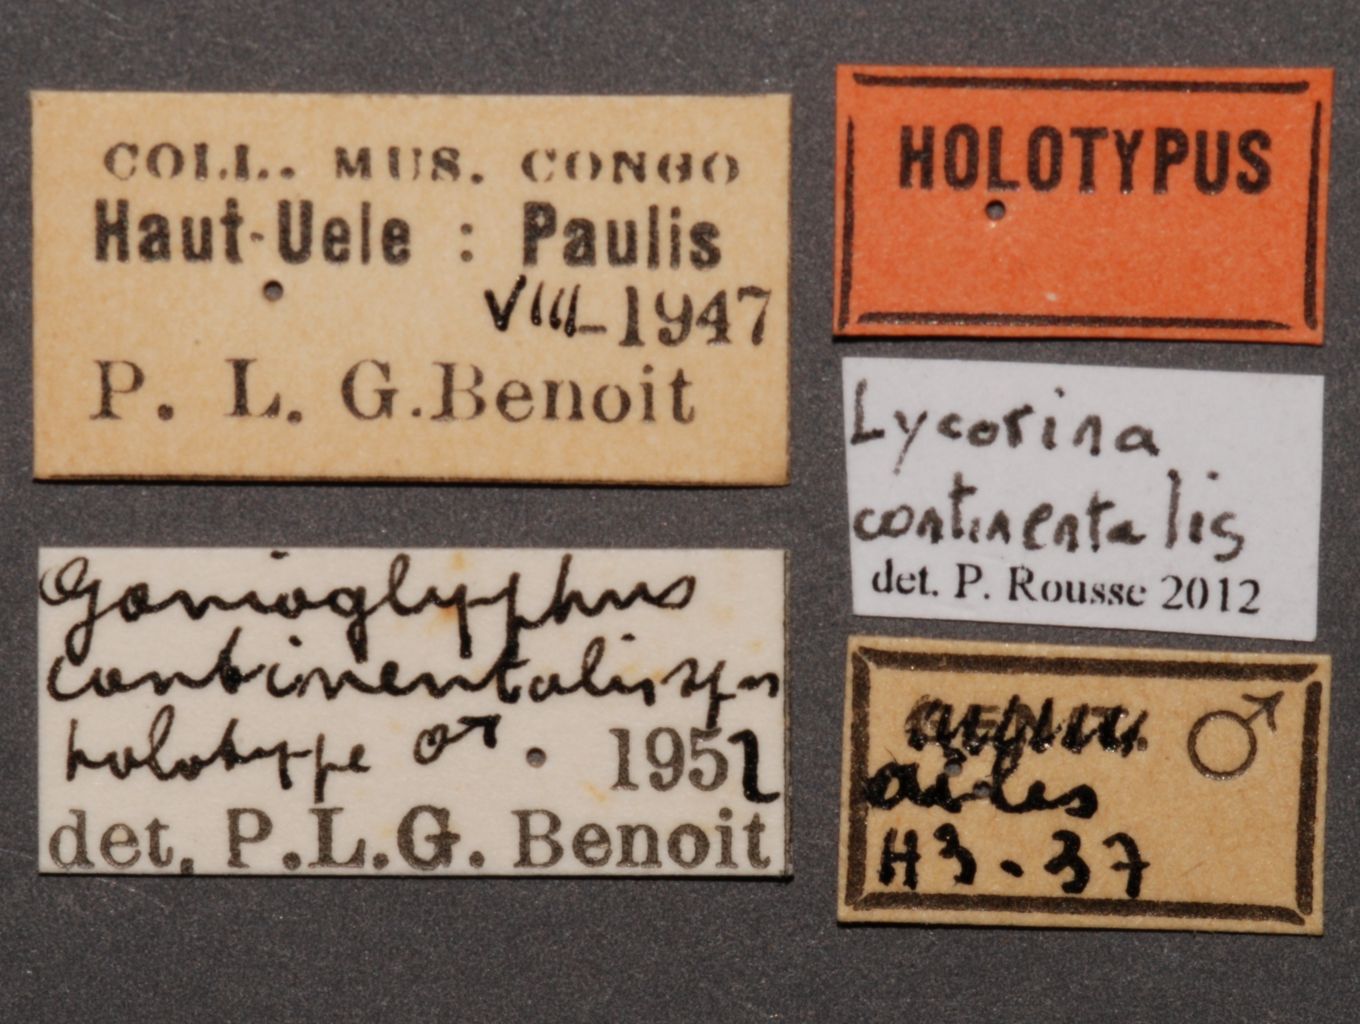 COLL. MUS. CONGO
Haut-Uele : Paulis
VIII-1947
P. L. G. Benoit
Gonioglyphus
continentalis spn
holotype ♂ 1952
det. P.L.G. Benoit
HOLOTYPUS
Lycorina
continentalis
det. P. Rousse 2012
♂
ailes
H3-37